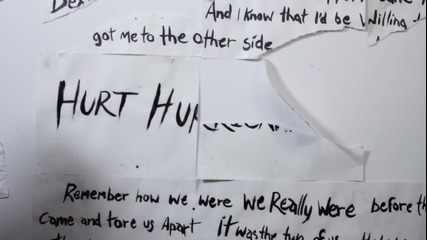 And I know that I'd be Willing
got me to the other side
HURT HUR
Remember how we were we Really were before
Came and tore us Apart it was the two of us